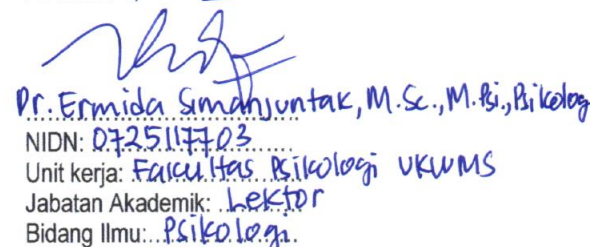 Dr. Ermida Simanjuntak, M.Sc., M.Psi., Psikolog
NIDN: 0725117703
Unit kerja: Fakultas Psikologi UKWMS
Jabatan Akademik: Lektor
Bidang Ilmu: Psikologi